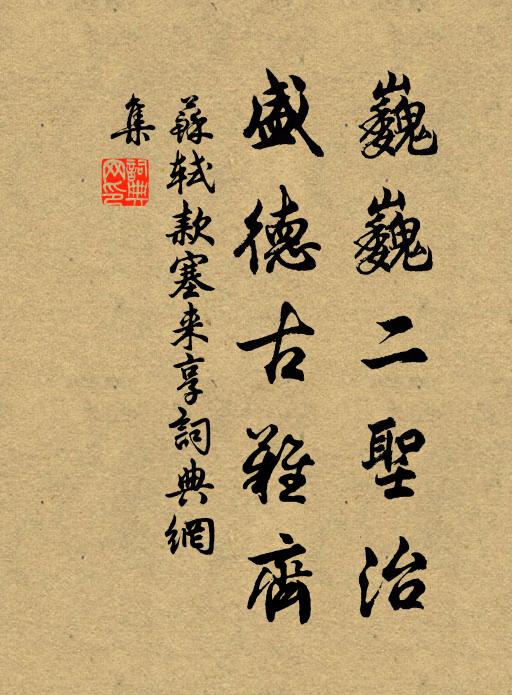 巍巍二聖治
盛德古難齊
蘇軾款塞来享詞典網
集
詞典
网印